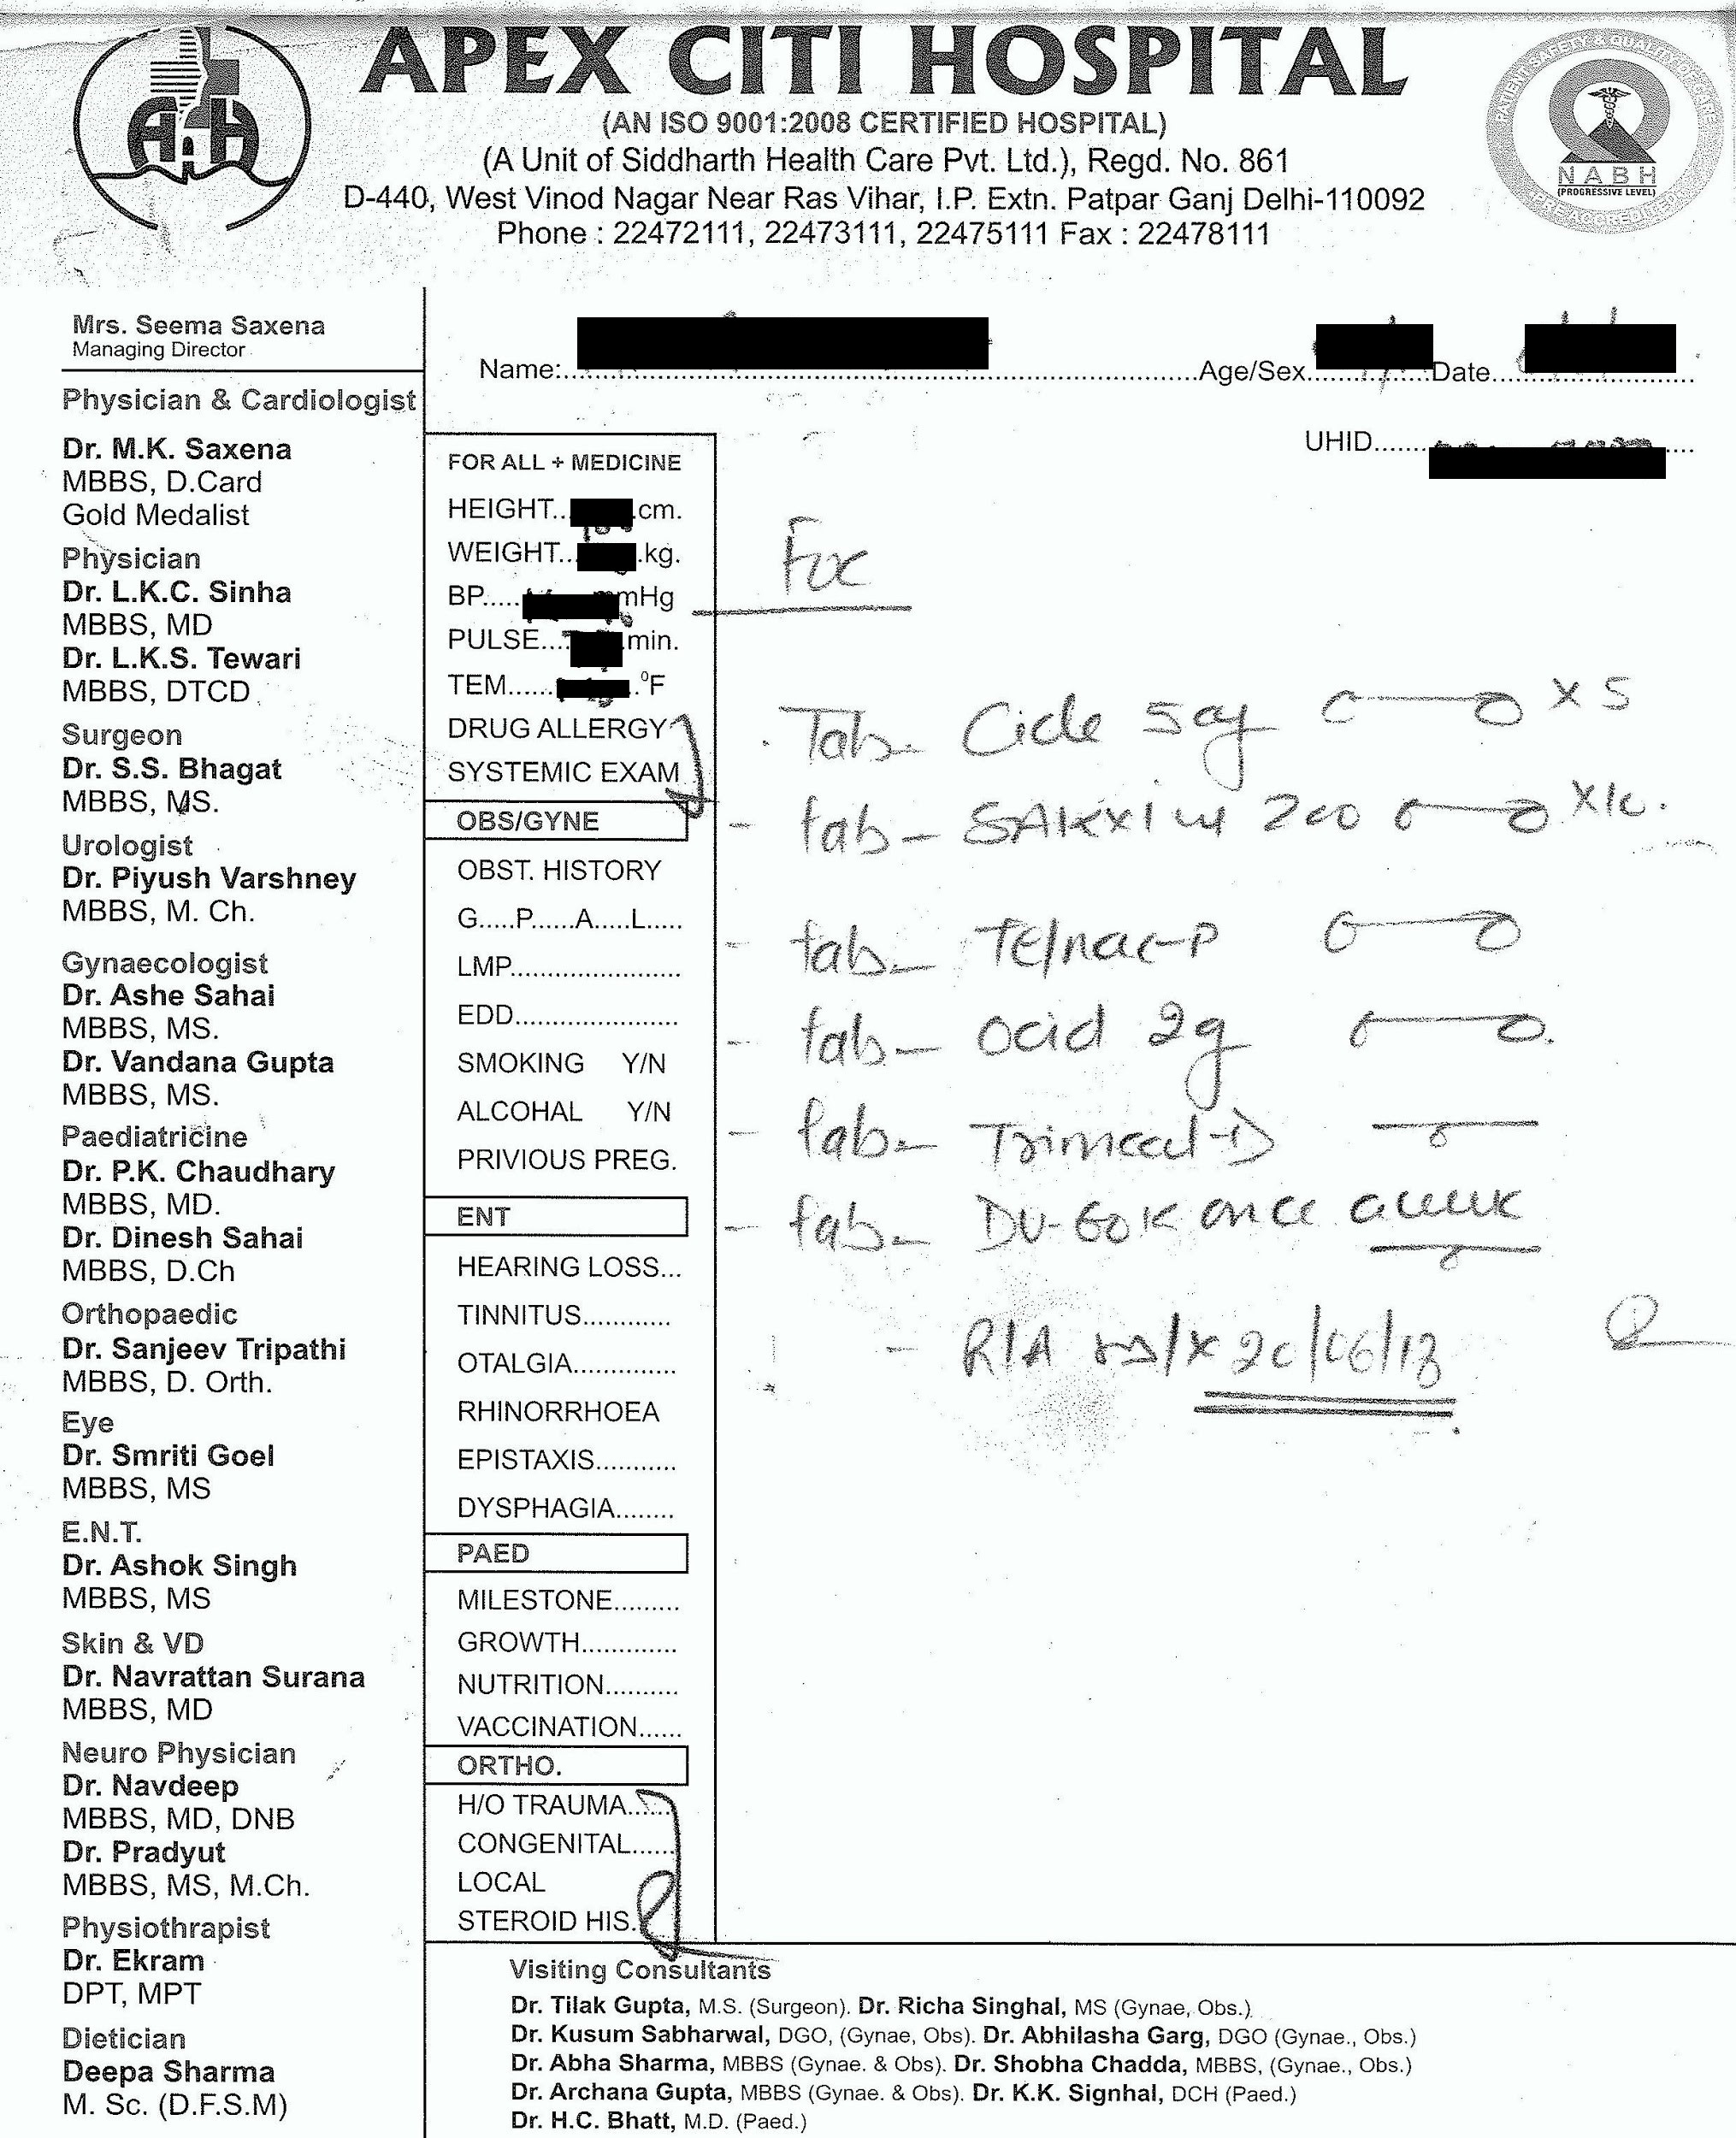 APEX CITI HOSPITAL
(AN ISO 9001:2008 CERTIFIED HOSPITAL)
(A Unit of Siddharth Health Care Pvt. Ltd.), Regd. No. 861
D-440, West Vinod Nagar Near Ras Vihar, I.P. Extn. Patpar Ganj Delhi-110092
Phone : 22472111, 22473111, 22475111 Fax : 22478111
PATIENT SAFETY & QUALITY OF CARE
NABH
(PROGRESSIVE LEVEL)
PRE ACCREDITED
Mrs. Seema Saxena
Managing Director
Name: Age/Sex Date
UHID
Physician & Cardiologist
Dr. M.K. Saxena
MBBS, D.Card
Gold Medalist
Physician
Dr. L.K.C. Sinha
MBBS, MD
Dr. L.K.S. Tewari
MBBS, DTCD
Surgeon
Dr. S.S. Bhagat
MBBS, MS.
Urologist
Dr. Piyush Varshney
MBBS, M. Ch.
Gynaecologist
Dr. Ashe Sahai
MBBS, MS.
Dr. Vandana Gupta
MBBS, MS.
Paediatricine
Dr. P.K. Chaudhary
MBBS, MD.
Dr. Dinesh Sahai
MBBS, D.Ch
Orthopaedic
Dr. Sanjeev Tripathi
MBBS, D. Orth.
Eye
Dr. Smriti Goel
MBBS, MS
E.N.T.
Dr. Ashok Singh
MBBS, MS
Skin & VD
Dr. Navrattan Surana
MBBS, MD
Neuro Physician
Dr. Navdeep
MBBS, MD, DNB
Dr. Pradyut
MBBS, MS, M.Ch.
Physiothrapist
Dr. Ekram
DPT, MPT
Dietician
Deepa Sharma
M. Sc. (D.F.S.M)
FOR ALL + MEDICINE
HEIGHT.. .cm.
WEIGHT... .kg.
BP..... mmHg
PULSE.... .min.
TEM...... .°F
DRUG ALLERGY
SYSTEMIC EXAM
OBS/GYNE
OBST. HISTORY
G.....P......A.....L.....
LMP.......................
EDD.......................
SMOKING Y/N
ALCOHAL Y/N
PRIVIOUS PREG.
ENT
HEARING LOSS...
TINNITUS............
OTALGIA..............
RHINORRHOEA
EPISTAXIS...........
DYSPHAGIA........
PAED
MILESTONE.........
GROWTH.............
NUTRITION..........
VACCINATION......
ORTHO.
H/O TRAUMA......
CONGENITAL......
LOCAL
STEROID HIS.
Tab- x 5
- tab- 200 x10.
- tab-
- tab- ocid
- tab-
- tab- once
- R/A
Visiting Consultants
Dr. Tilak Gupta, M.S. (Surgeon). Dr. Richa Singhal, MS (Gynae, Obs.)
Dr. Kusum Sabharwal, DGO, (Gynae, Obs). Dr. Abhilasha Garg, DGO (Gynae., Obs.)
Dr. Abha Sharma, MBBS (Gynae. & Obs). Dr. Shobha Chadda, MBBS, (Gynae., Obs.)
Dr. Archana Gupta, MBBS (Gynae. & Obs). Dr. K.K. Signhal, DCH (Paed.)
Dr. H.C. Bhatt, M.D. (Paed.)